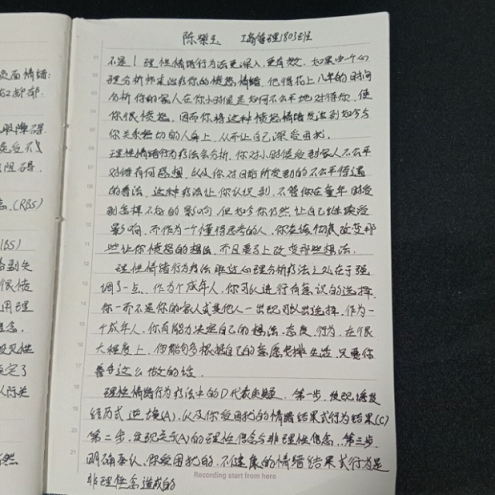 陈
工商管理1803班
不是！理性情绪行为疗法更深入，更有效，如果由一个心
理分析师来治疗你的愤怒情绪，他将花上八年的时间
分析你的家人在你小时候是如何不公平地对待你，使
你很愤怒，因而你将这种愤怒情绪发泄到如今与
你关系密切的人身上，从而让自己深受困扰。
理性情绪行为疗法会分析，你对小时候受到家人不公平
对待有何感想，以及你对目前所受到的不公平待遇
的看法，这种疗法让你认识到，不管你在童年时受
到怎样不好的影响，但如今你仍然让自己继续受
影响，而作为一个懂得思考的人，你应该彻底改变那
些让你愤怒的想法，而且要马上改变那些想法。
理性情绪行为疗法胜过心理分析疗法之处在于强
调了一点，作为个成年人，你可以进行有意识的选择，
你—而不是你的家人或其他人—出现可以选择，作为一
个成年人，你有能力决定自己的想法、态度、行为，在很
大程度上，你能够根据自己的意愿安排生活，只要你
着手这么做的话
理性情绪行为疗法中的D代表质疑，第一步，发现诱发
经历或逆境(A)，以及你受困扰的情绪结果或行为结果(C)
第二步，发现关(A)的理性信念与非理性信念，第三步，
明确承认，你受困扰的、不健康的情绪结果或行为是
非理性信念造成的
Recording start from here
负面情绪
(RBS)